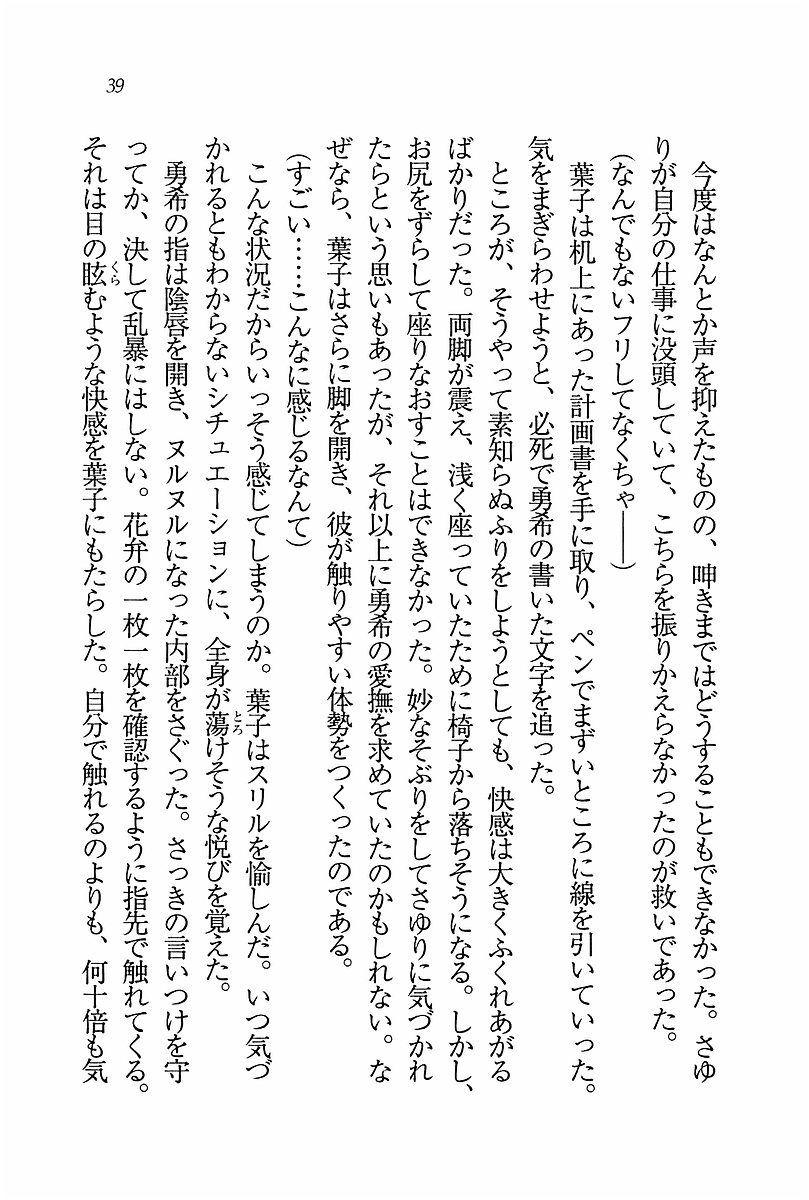 39
今度はなんとか声を抑えたものの、呻きまではどうすることもできなかった。さゆ
りが自分の仕事に没頭していて、こちらを振りかえらなかったのが救いであった。
（なんでもないフリしてなくちゃ――）
葉子は机上にあった計画書を手に取り、ペンでまずいところに線を引いていった。
気をまぎらわせようと、必死で勇希の書いた文字を追った。
ところが、そうやって素知らぬふりをしようとしても、快感は大きくふくれあがる
ばかりだった。両脚が震え、浅く座っていたために椅子から落ちそうになる。しかし、
お尻をずらして座りなおすことはできなかった。妙なそぶりをしてさゆりに気づかれ
たらという思いもあったが、それ以上に勇希の愛撫を求めていたのかもしれない。な
ぜなら、葉子はさらに脚を開き、彼が触りやすい体勢をつくったのである。
（すごい……こんなに感じるなんて）
こんな状況だからいっそう感じてしまうのか。葉子はスリルを愉しんだ。いつ気づ
かれるともわからないシチュエーションに、全身が蕩とろけそうな悦びを覚えた。
勇希の指は陰唇を開き、ヌルヌルになった内部をさぐった。さっきの言いつけを守
ってか、決して乱暴にはしない。花弁の一枚一枚を確認するように指先で触れてくる。
それは目の眩くらむような快感を葉子にもたらした。自分で触れるのよりも、何十倍も気